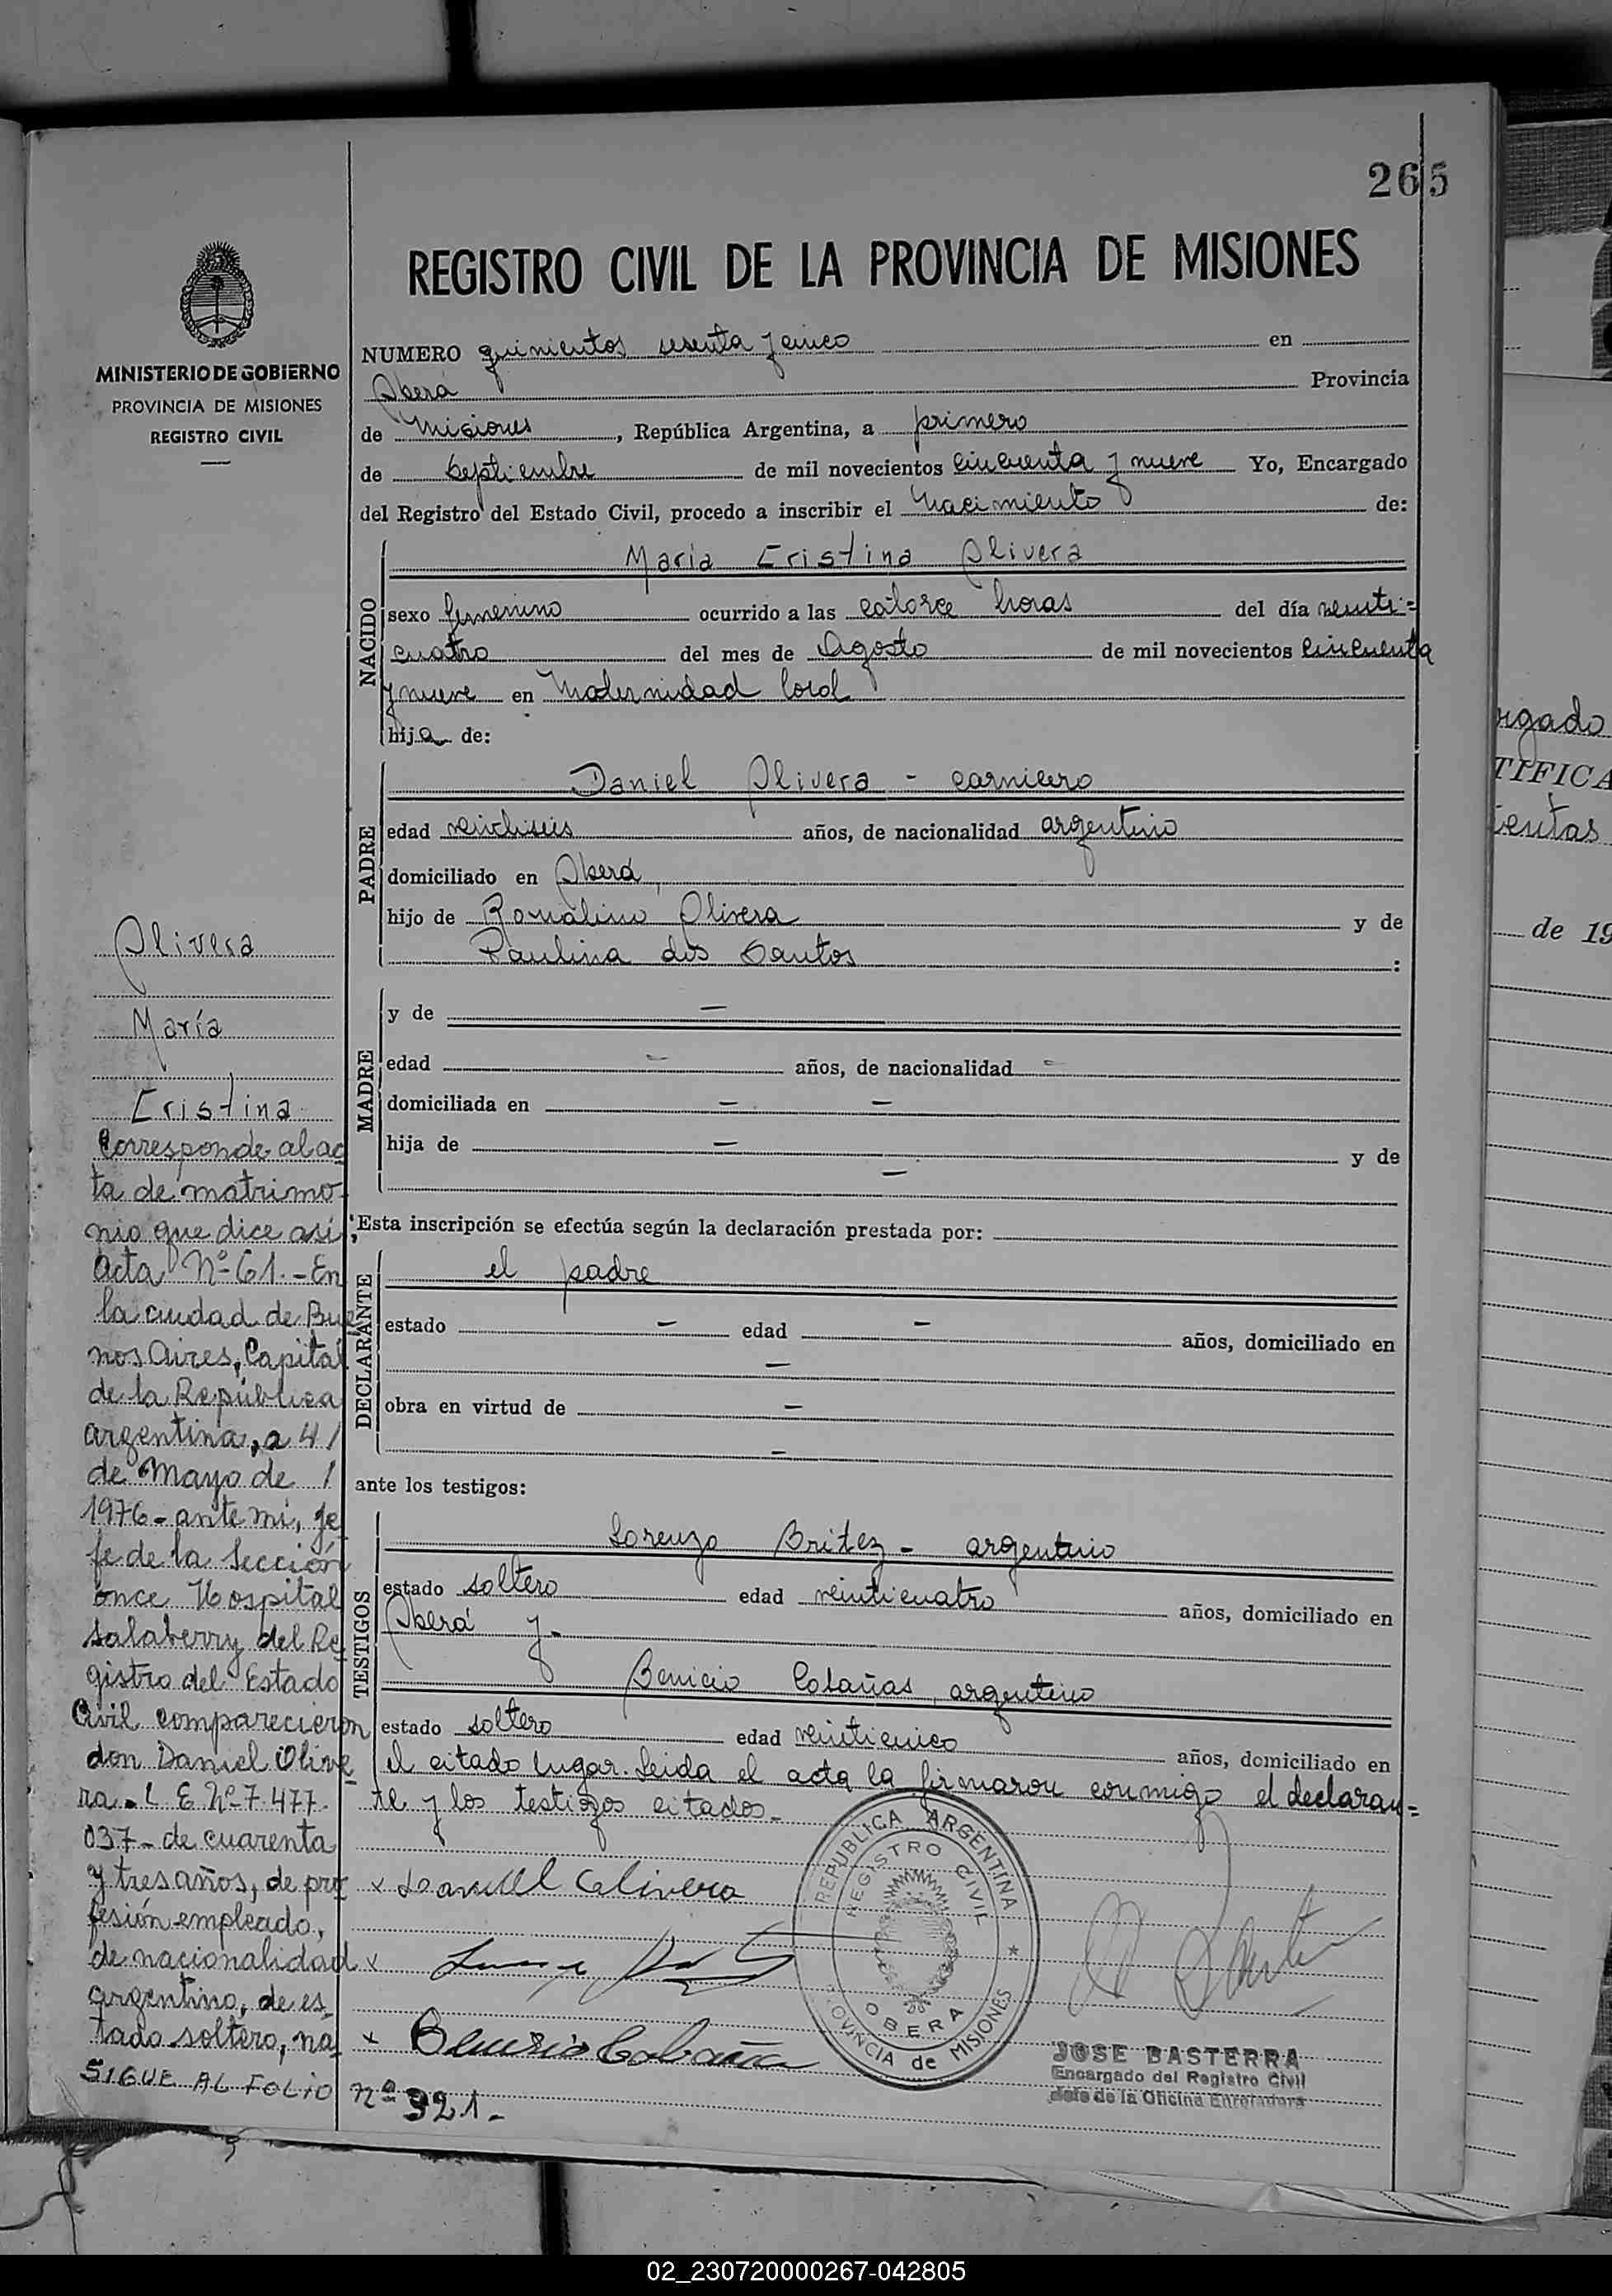 265
REGISTRO CIVIL DE LA PROVINCIA DE MISIONES
MINISTERIO DE GOBIERNO
PROVINCIA DE MISIONES
REGISTRO CIVIL
NUMERO quinientos sesenta y cinco en
Oberá Provincia
de Misiones, República Argentina, a primero
de Septiembre de mil novecientos cincuenta y nueve Yo, Encargado
del Registro del Estado Civil, procedo a inscribir el Nacimiento de:
NACIDO
María Cristina Olivera
sexo femenino ocurrido a las catorce horas del día veinti=
cuatro del mes de Agosto de mil novecientos cincuenta
y nueve en Maternidad local
hija de:
PADRE
Daniel Olivera - carnicero
edad veintiseis años, de nacionalidad argentino
domiciliado en Oberá,
hijo de Romalino Olivera y de
Paulina dos Santos :
MADRE
y de —
edad — años, de nacionalidad —
domiciliada en — —
hija de — y de
—
Esta inscripción se efectúa según la declaración prestada por:
DECLARANTE
el padre
estado — edad — años, domiciliado en
—
obra en virtud de —
—
ante los testigos:
TESTIGOS
Lorenzo Britez - argentino
estado soltero edad veinticuatro años, domiciliado en
Oberá y -
Benicio Cabañas, argentino
estado soltero edad veinticinco años, domiciliado en
el citado lugar. Leida el acta la firmaron conmigo el declaran=
te y los testigos citados -
x Daniel Olivera
x
x Benisio Cabaña
REPUBLICA ARGENTINA
REGISTRO CIVIL
OBERA
PROVINCIA de MISIONES
JOSE BASTERRA
Encargado del Registro Civil
Jefe de la Oficina Enroladora
Olivera
María
Cristina
Corresponde al ac
ta de matrimo-
nio que dice así;
Acta Nº 61.- En
la ciudad de Bue-
nos Aires, Capital
de la República
Argentina, a 4 /
de Mayo de /
1976 - ante mi, Je
fe de la Sección
once Hospital
Salaberry del Re-
gistro del Estado
Civil comparecieron
don Daniel Olive-
ra. L E Nº 7.477.
037 - de cuarenta
y tres años, de pro-
fesión empleado,
de nacionalidad
argentino, de es-
tado soltero, na-
SIGUE AL FOLIO Nº 321.-
rigado
TIFICA
ientas
de 19
02_230720000267-042805